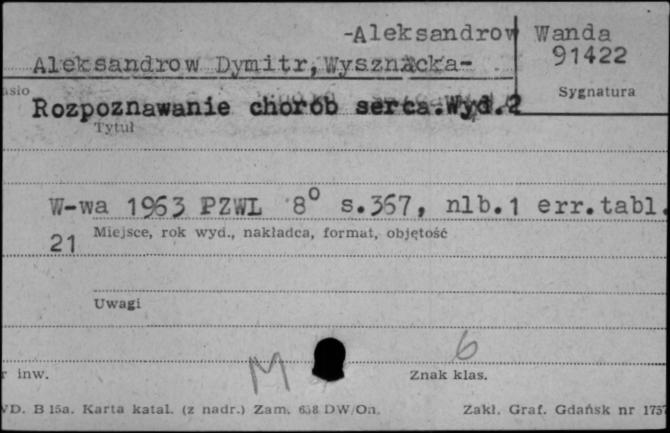 -Aleksandrow Wanda
Aleksandrow Dymitr, Wysznacka-
91422
asło
Sygnatura
Rozpoznawanie chorób serca.Wyd.2
Tytuł
W-wa 1963 PZWL 8° s.367, nlb.1 err.tabl.
21
Miejsce, rok wyd., nakładca, format, objętość
Uwagi
M
6
r inw.
Znak klas.
WD. B 15a. Karta katal. (z nadr.) Zam. 658 DW/On.
Zakł. Graf. Gdańsk nr 1757